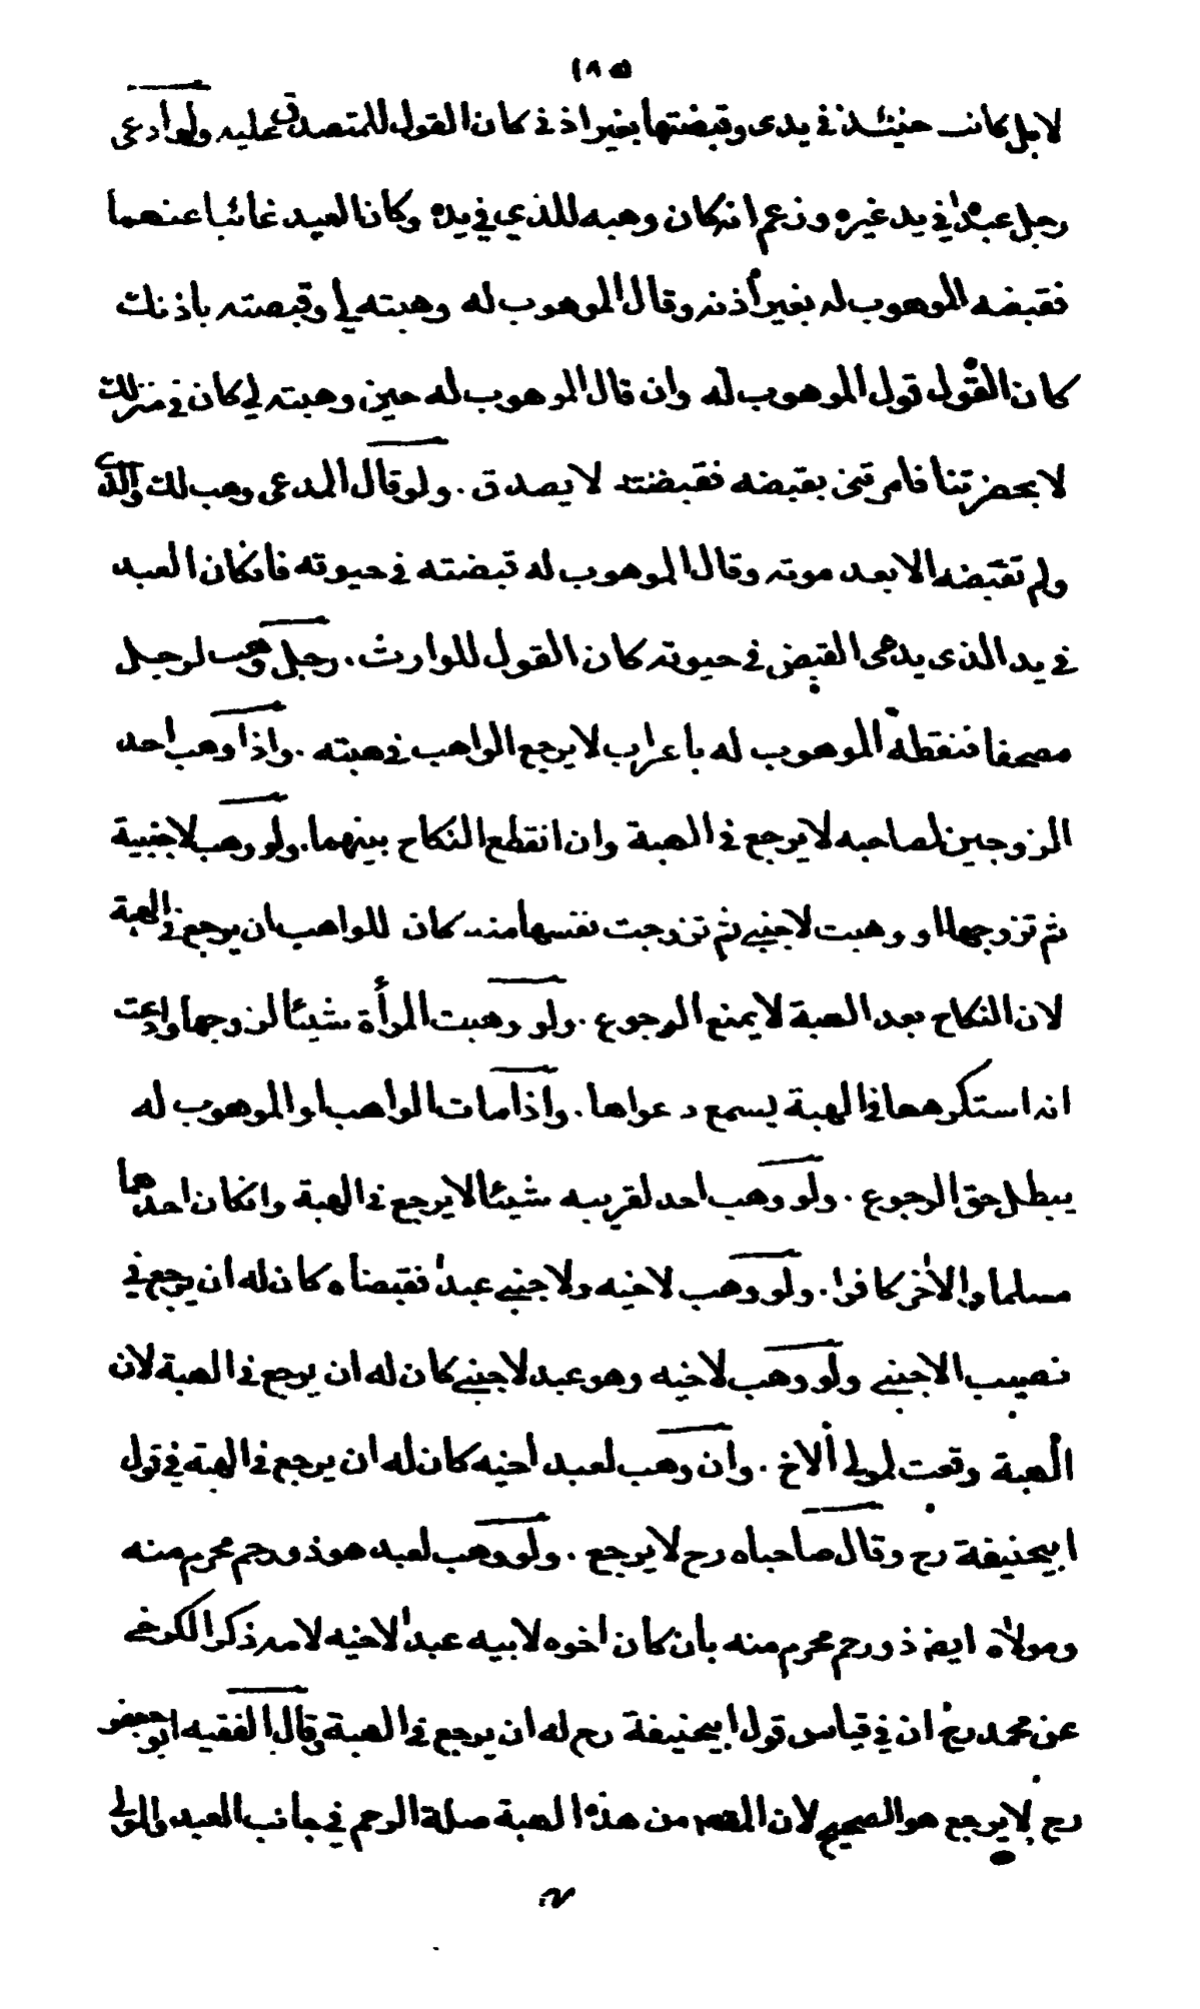 (١٨٥
لا بل كانت حينئذ في يدى وقبضتها بغير اذني كان القول للمتصدق عليه ولو ادعى
رجل عبدا في يد غيره وزعم انه كان وهبه للذي في يده وكان العبد غائبا عنهما
فقبضه الموهوب له بغير أذنه وقال الموهوب له وهبته لي وقبضته باذنك
كان القول قول الموهوب له وان قال الموهوب له حين وهبته لي كان في منزلك
لا بحضرتنا فامرتنى بقبضه فقبضته لا يصدق . ولو قال المدعى وهب لك والدى
ولم تقبضه الا بعد موته وقال الموهوب له قبضته في حيوته فانكان العبد
في يد الذى يدعى القبض في حيوته كان القول للوارث . رجل وهب لرجل
مصحفا فنقطه الموهوب له باعراب لا يرجع الواهب في هبته . واذا وهب احد
الزوجين لصاحبه لا يرجع في الهبة وان انقطع النكاح بينهما . ولو وهب لاجنبية
ثم تزوجها او وهبت لاجنبي ثم تزوجت نفسها منه كان للواهب ان يرجع في الهبة
لان النكاح بعد الهبة لا يمنع الرجوع . ولو وهبت المرأة شيئا لزوجها وادعت
انه استكرهها في الهبة يسمع دعواها . واذا مات الواهب او الموهوب له
يبطل حق الرجوع . ولو وهب احد لقريبه شيئا لا يرجع في الهبة وانكان احدهما
مسلما والاخر كافرا . ولو وهب لاخيه ولاجنبي عبدا فقبضاه كان له ان يرجع في
نصيب الاجنبي ولو وهب لاخيه وهو عبد لاجنبي كان له ان يرجع في الهبة لان
الهبة وقعت لمولى الاخ . وان وهب لعبد اخيه كان له ان يرجع في الهبة في قول
ابيحنيفة رح وقال صاحباه رح لا يرجع . ولو وهب لعبد هو ذو رحم محرم منه
ومولاه ايضا ذو رحم محرم منه بان كان اخوه لابيه عبدا لاخيه لامه ذكر الكرخي
عن محمد رح ان في قياس قول ابيحنيفة رح له ان يرجع في الهبة وقال الفقيه ابو جعفر
رح لا يرجع هو الصحيح لان المقصود من هذه الهبة صلة الرحم في جانب العبد والمولى